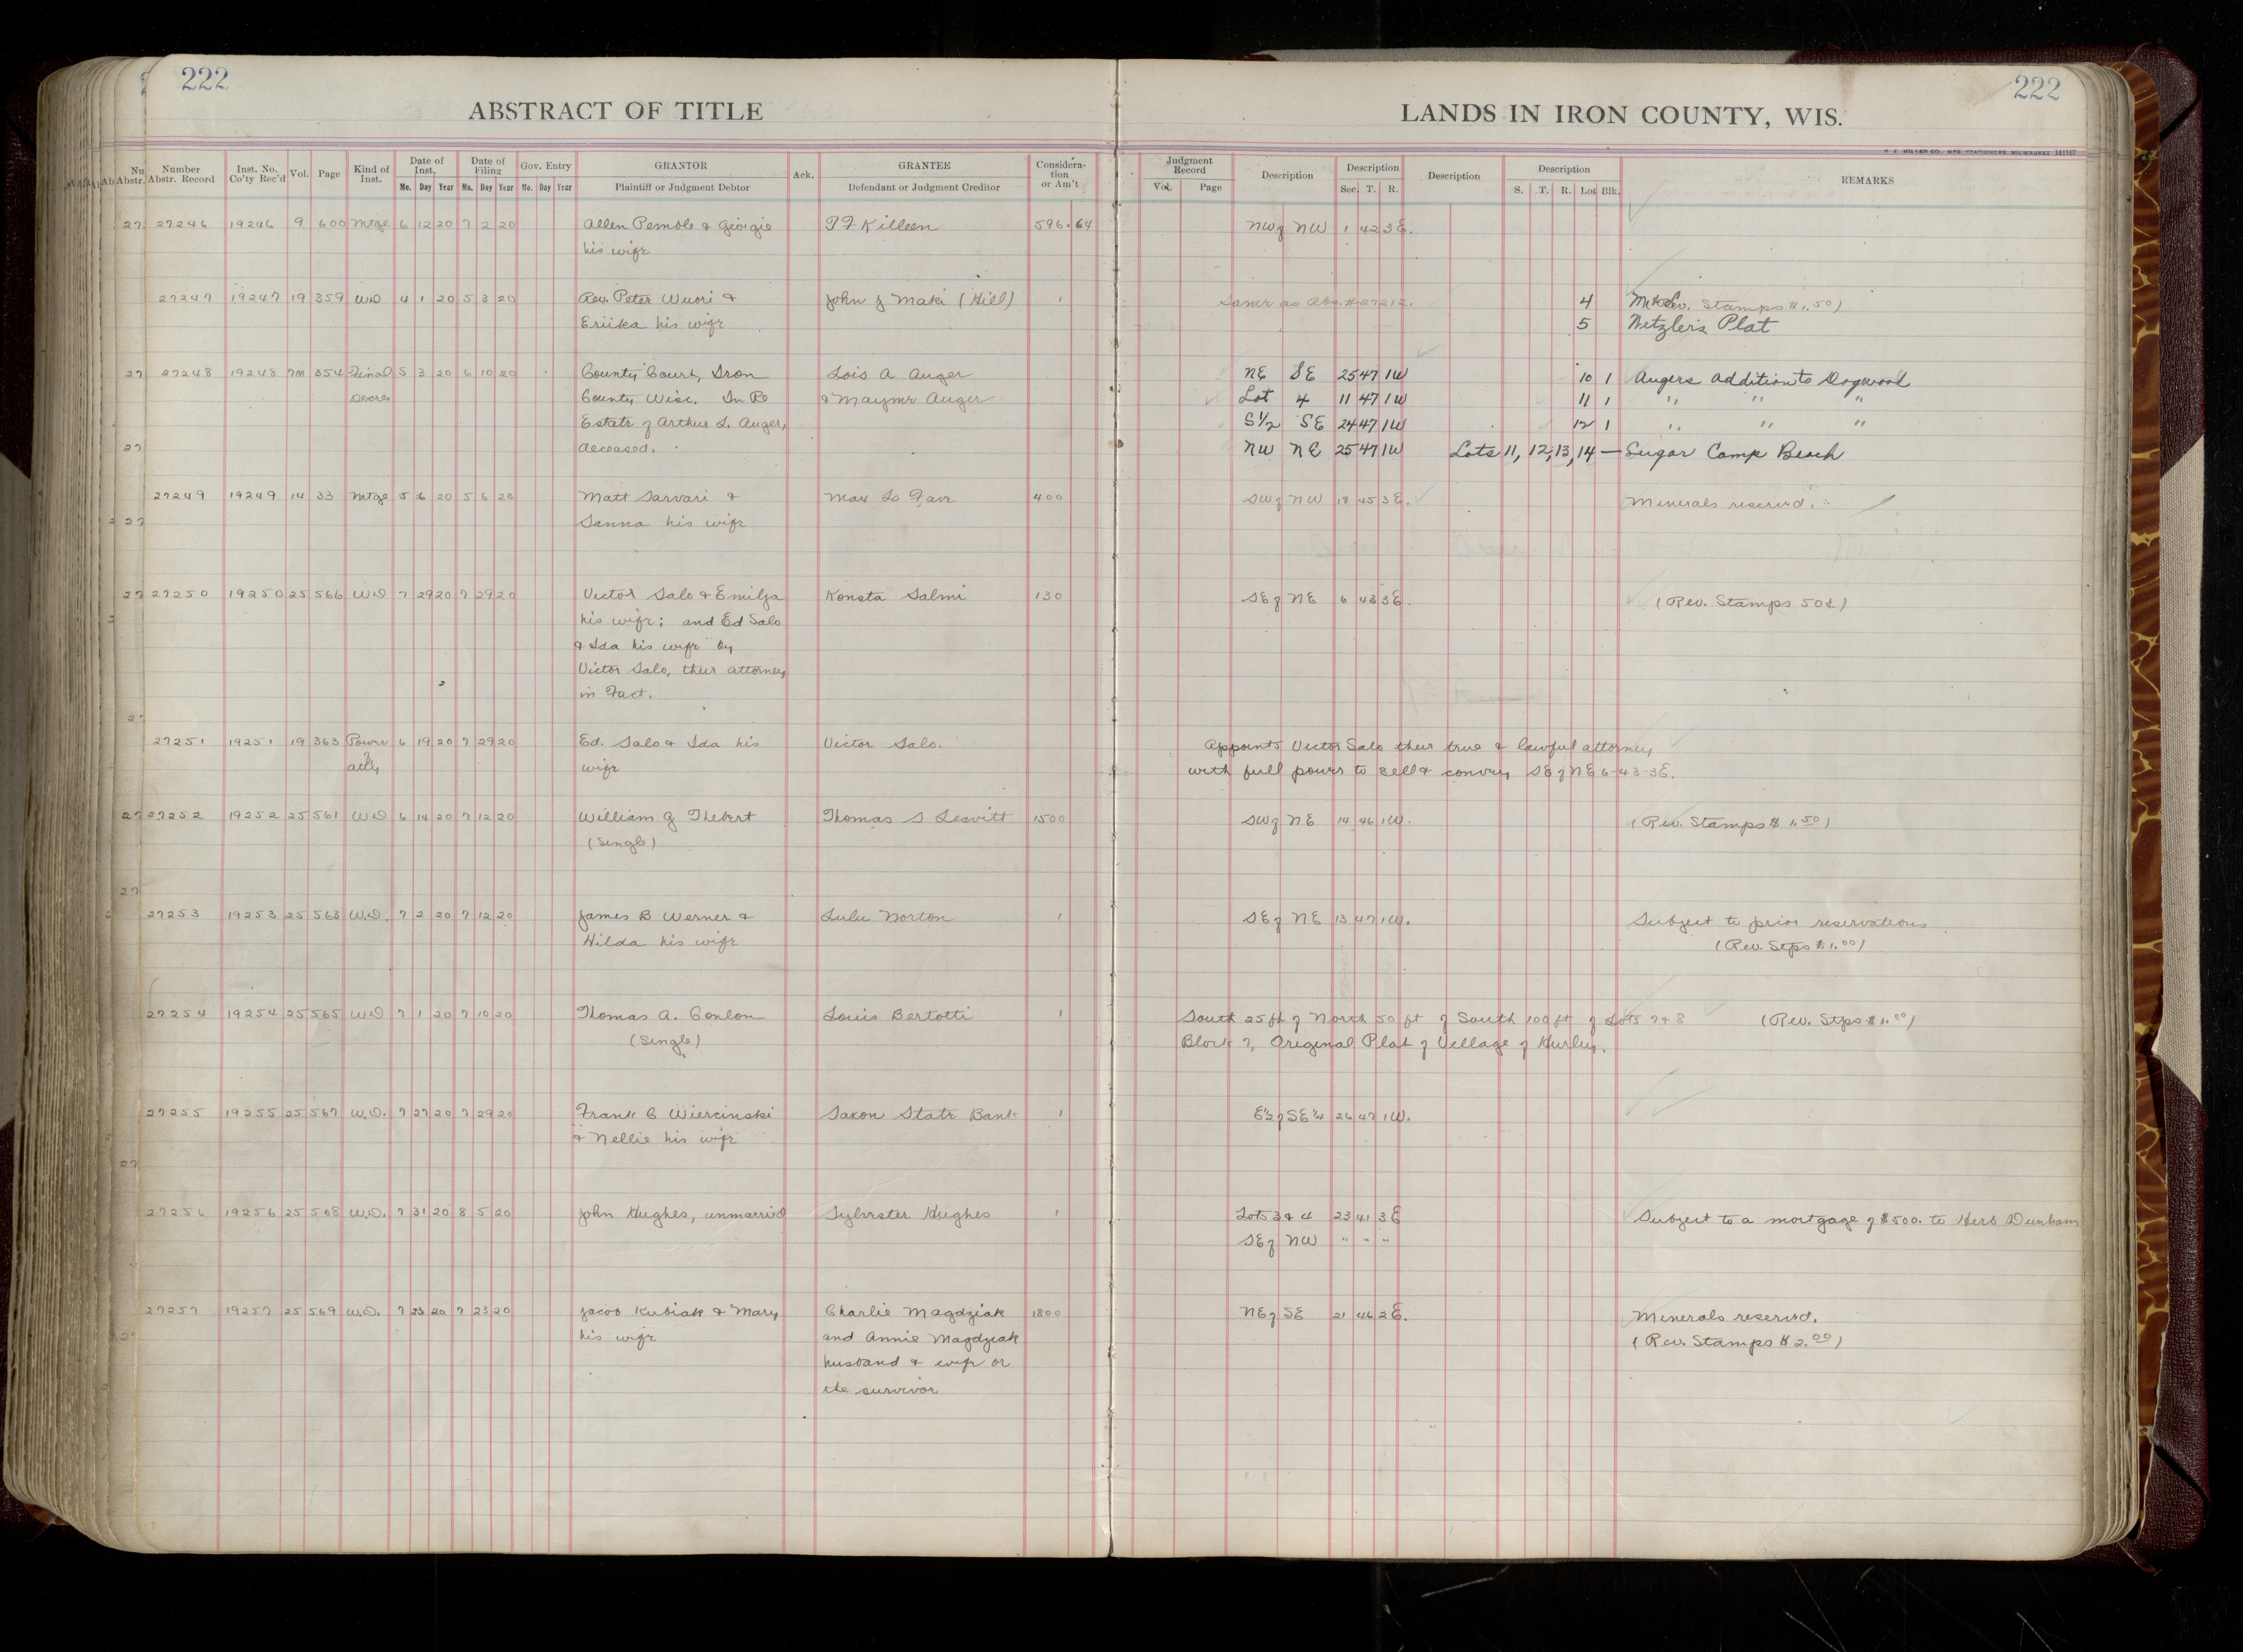 222
222
ABSTRACT OF TITLE
LANDS IN IRON COUNTY, WIS.
H. C. MILLER CO., MFG. STATIONERS, MILWAUKEE 141167
Number Abstr. Record Inst. No. Co'ty Rec'd Vol. Page Kind of Inst. Date of Inst. Date of Filing Gov. Entry GRANTOR Ack. GRANTEE Considera-tion or Am't Judgment Record Description Description Description Description REMARKS
Mo. Day Year Mo. Day Year Mo. Day Year Plaintiff or Judgment Debtor Defendant or Judgment Creditor Vol. Page Sec. T. R. S. T. R. Lot Blk.
27246 19246 9 600 Mtge 6 12 20 7 2 20 Allen Pemble & Georgie T F Killeen 596.64 NW of NW 1 42 3E.
his wife
27247 19247 19 359 WD 4 1 20 5 3 20 Rev. Peter Wuori & John J Maki (Hill) 1 Same as Abs. # 27212. 4 Rev. Stamps $1.50)
Eriika his wife 5 Wetzler's Plat
27248 19248 7M 354 Final 5 3 20 6 10 20 County Court, Iron Lois A Auger NE SE 25 47 1W 10 1 Augers Addition to Dogwood
Decree County Wisc. In Re & Mayme Auger Lot 4 11 47 1W 11 1 " " "
Estate of Arthur L. Auger, S1/2 SE 24 47 1W 12 1 " " "
deceased. NW NE 25 47 1W Lots 11, 12, 13, 14 — Sugar Camp Beach
27249 19249 14 33 Mtge 5 6 20 5 6 20 Matt Sarvari & Max La Favr 400 SW of NW 18 45 3E. Minerals reserved.
Sanna his wife
27250 19250 25 566 WD 7 29 20 7 29 20 Victor Salo & Emilja Konsta Salmi 130 SE of NE 6 43 3E. (Rev. Stamps 50¢)
his wife; and Ed Salo
& Ida his wife by
Victor Salo, their attorney
in Fact.
27251 19251 19 363 Power 6 19 20 7 29 20 Ed. Salo & Ida his Victor Salo. Appoints Victor Salo their true & lawful attorney
of atty wife with full power to sell & convey SE of NE 6-43-3E.
27252 19252 25 561 WD 6 14 20 7 12 20 William J Thebert Thomas S Leavitt 1500 SW of NE 14 46 1W. (Rev. Stamps $1.50)
(Single)
27253 19253 25 563 W.D. 7 2 20 7 12 20 James B Werner & Lulu Norton 1 SE of NE 13 47 1W. Subject to prior reservations
Hilda his wife (Rev. Stps $1.00)
27254 19254 25 565 WD 7 1 20 7 10 20 Thomas A. Conlon Louis Bertotti 1 South 25 ft of North 50 ft of South 100 ft of Lots 7 & 8 (Rev. Stps $1.00)
(Single) Block 7, Original Plat of Village of Hurley.
27255 19255 25 567 W.D. 7 27 20 7 29 20 Frank C Wiercinski Saxon State Bank 1 E½ of SE¼ 26 47 1W.
& Nellie his wife
27256 19256 25 568 W.D. 7 31 20 8 5 20 John Hughes, unmarried Sylvester Hughes 1 Lots 3 & 4 23 41 3E Subject to a mortgage of $500. to Herb Dunham
SE of NW " " "
27257 19257 25 569 W.D. 7 23 20 7 23 20 Jacob Kubiak & Mary Charlie Magdziak 1800 NE of SE 21 46 2E. Minerals reserved.
his wife and Annie Magdziak (Rev. Stamps $2.00)
husband & wife or
the survivor